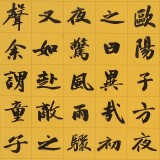 歐陽子方夜
之曰異哉初
夜驚風雨驟
又如赴敵之
聲余謂童子